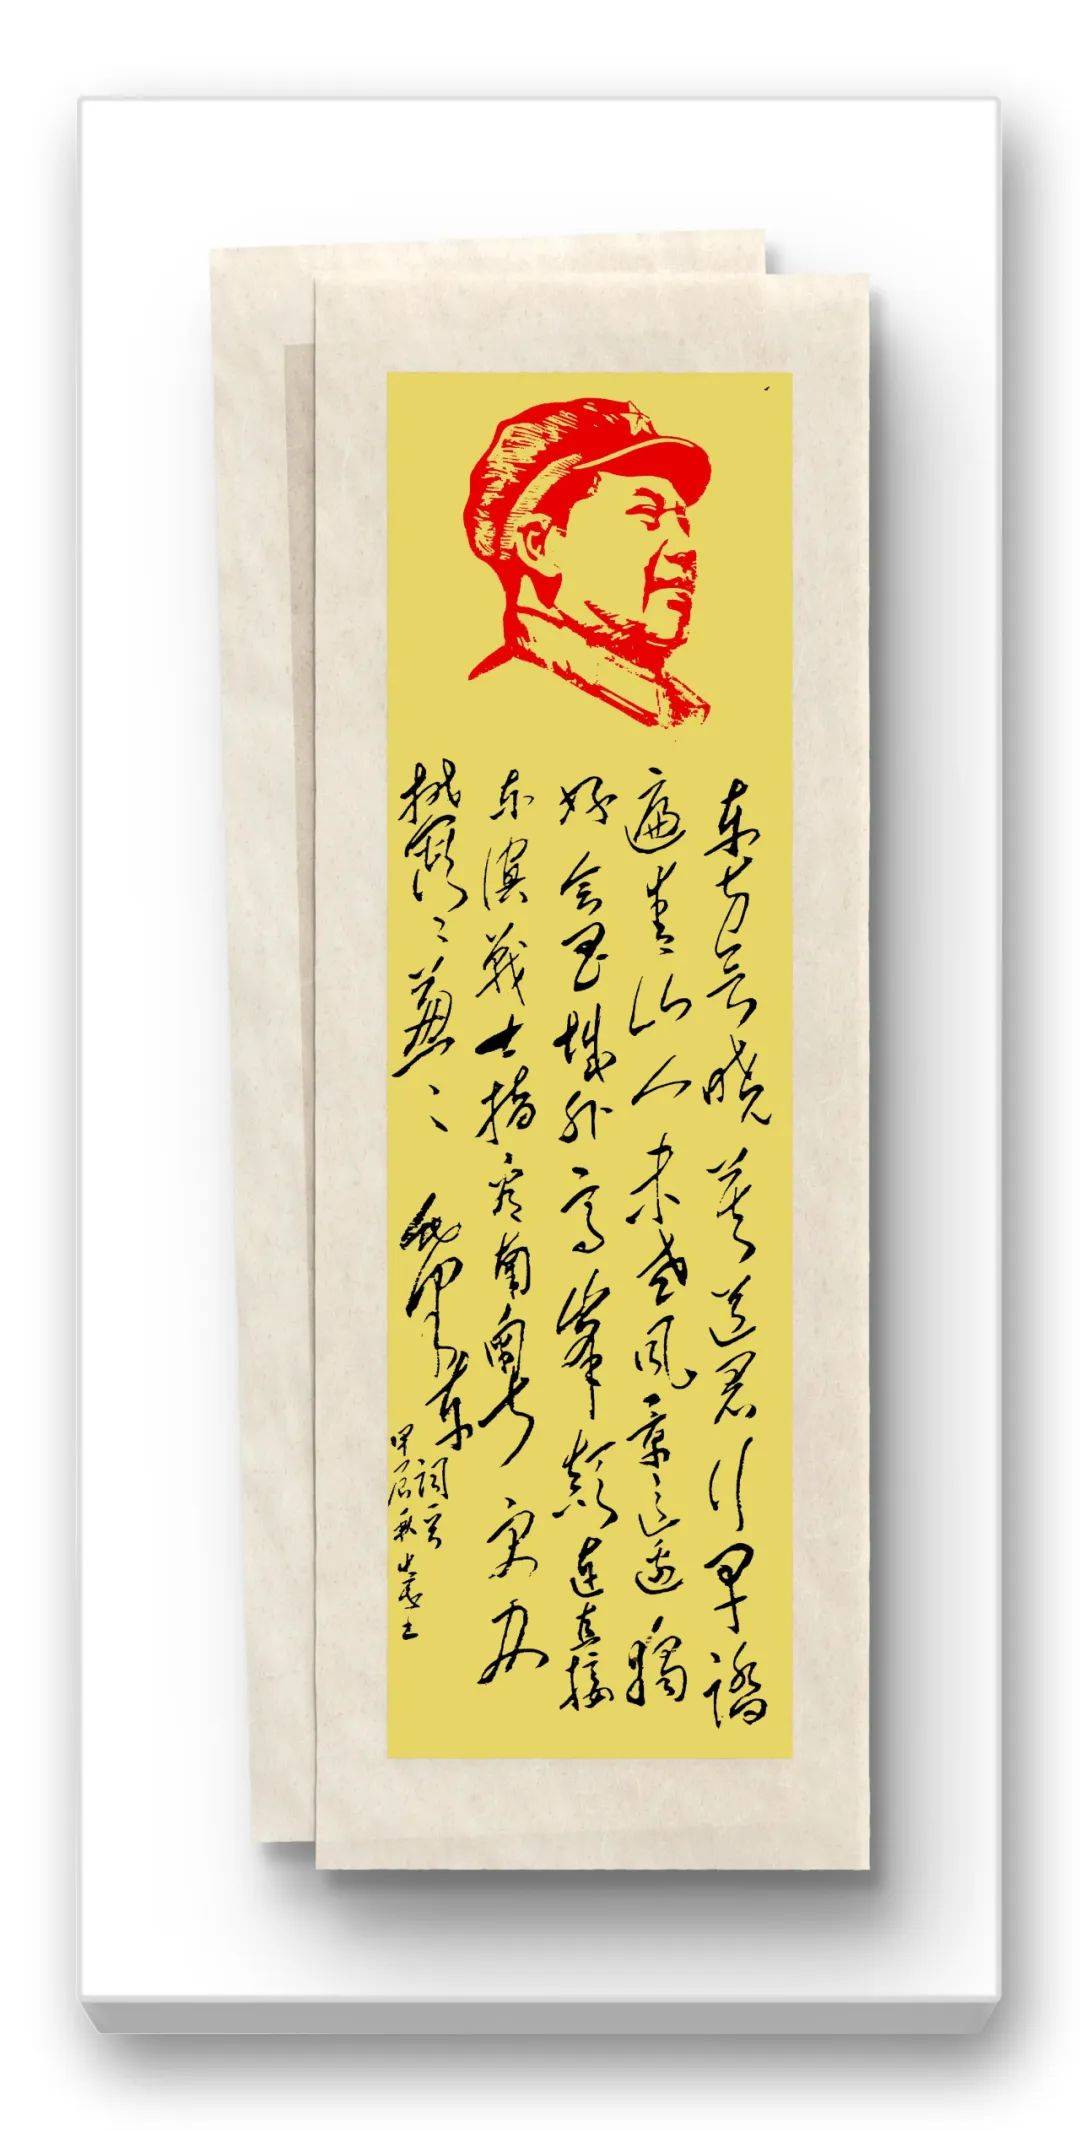 东方欲晓莫道君行早踏
遍青山人未老风景这边独
好会昌城外高峰颠连直接
东溟战士指看南粤更加
郁〻葱〻 毛泽东
词
甲辰秋